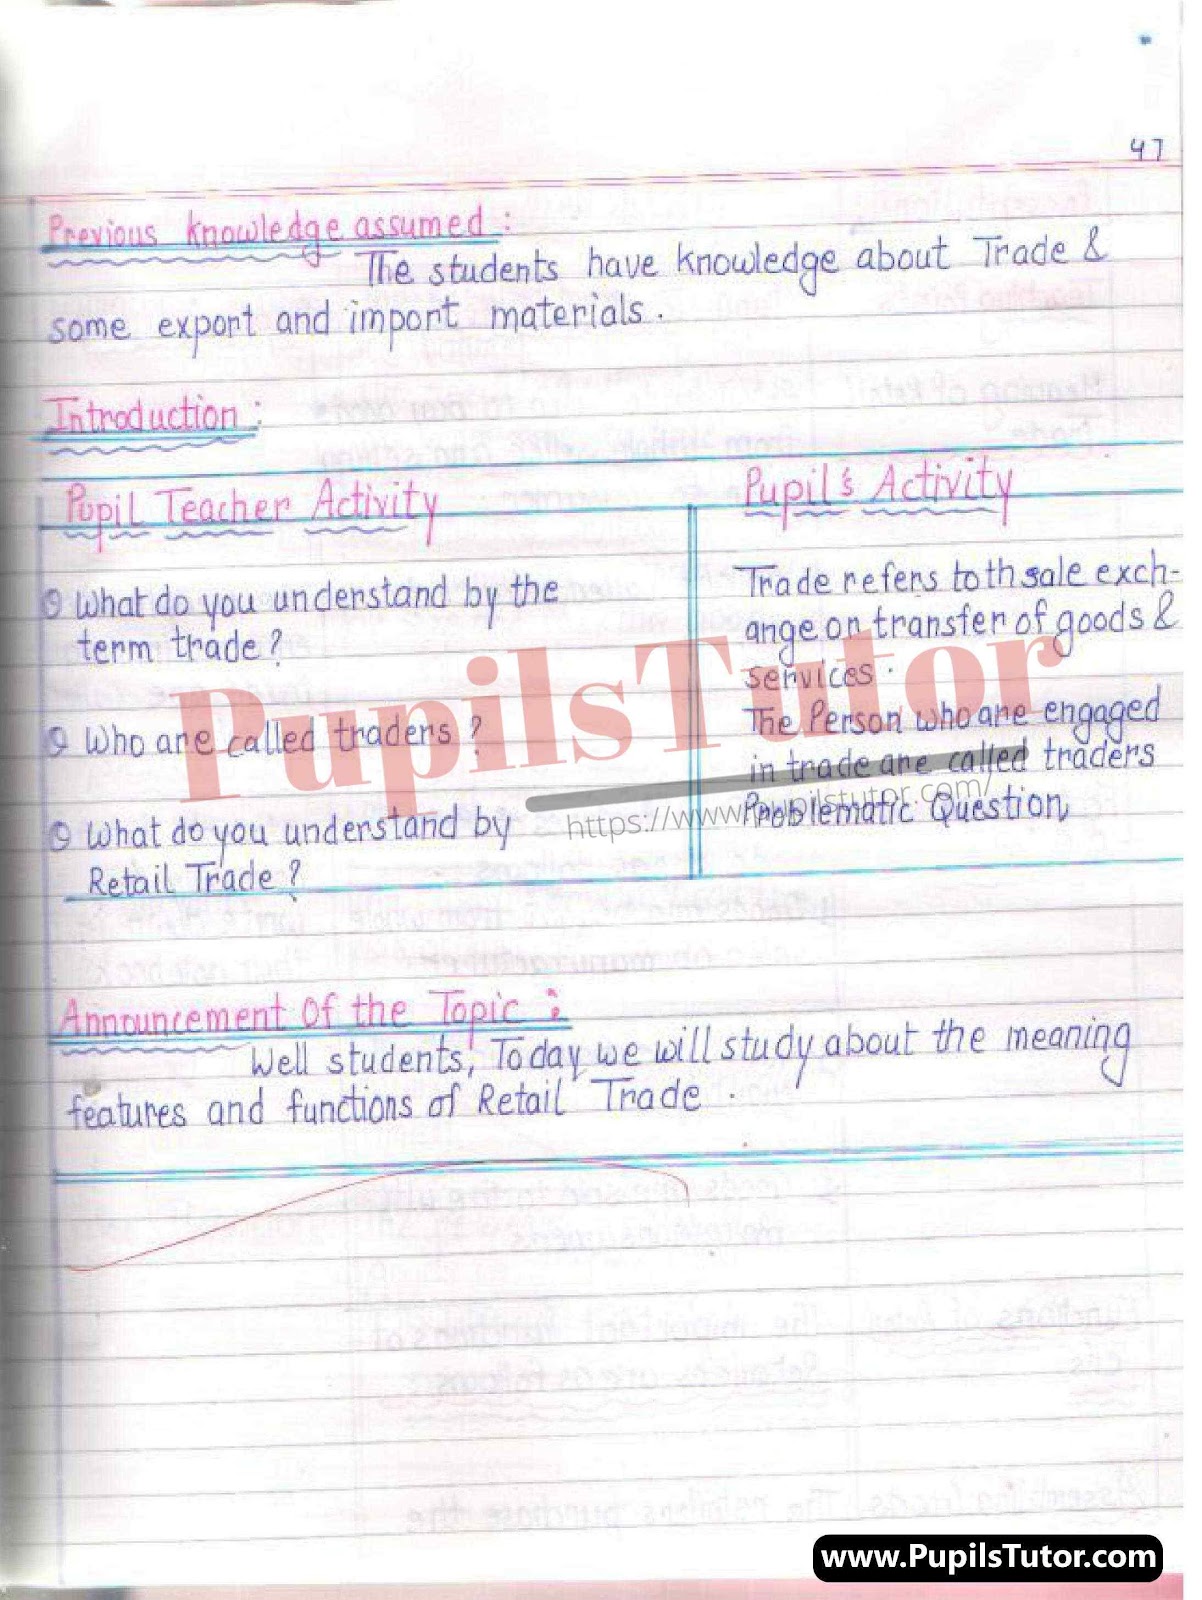 47
Previous knowledge assumed :
The students have knowledge about Trade &
some export and import materials .
Introduction :
Pupil Teacher Activity
Pupil's Activity
What do you understand by the
term trade ?
Who are called traders ?
What do you understand by
Retail Trade ?
Trade refers to th sale exch-
ange on transfer of goods &
services .
The Person who are engaged
in trade are called traders
Problematic Question
Announcement Of the Topic :
Well students, Today we will study about the meaning
features and functions of Retail Trade .
PupilsTutor
https://www.pupilstutor.com/
www.PupilsTutor.com